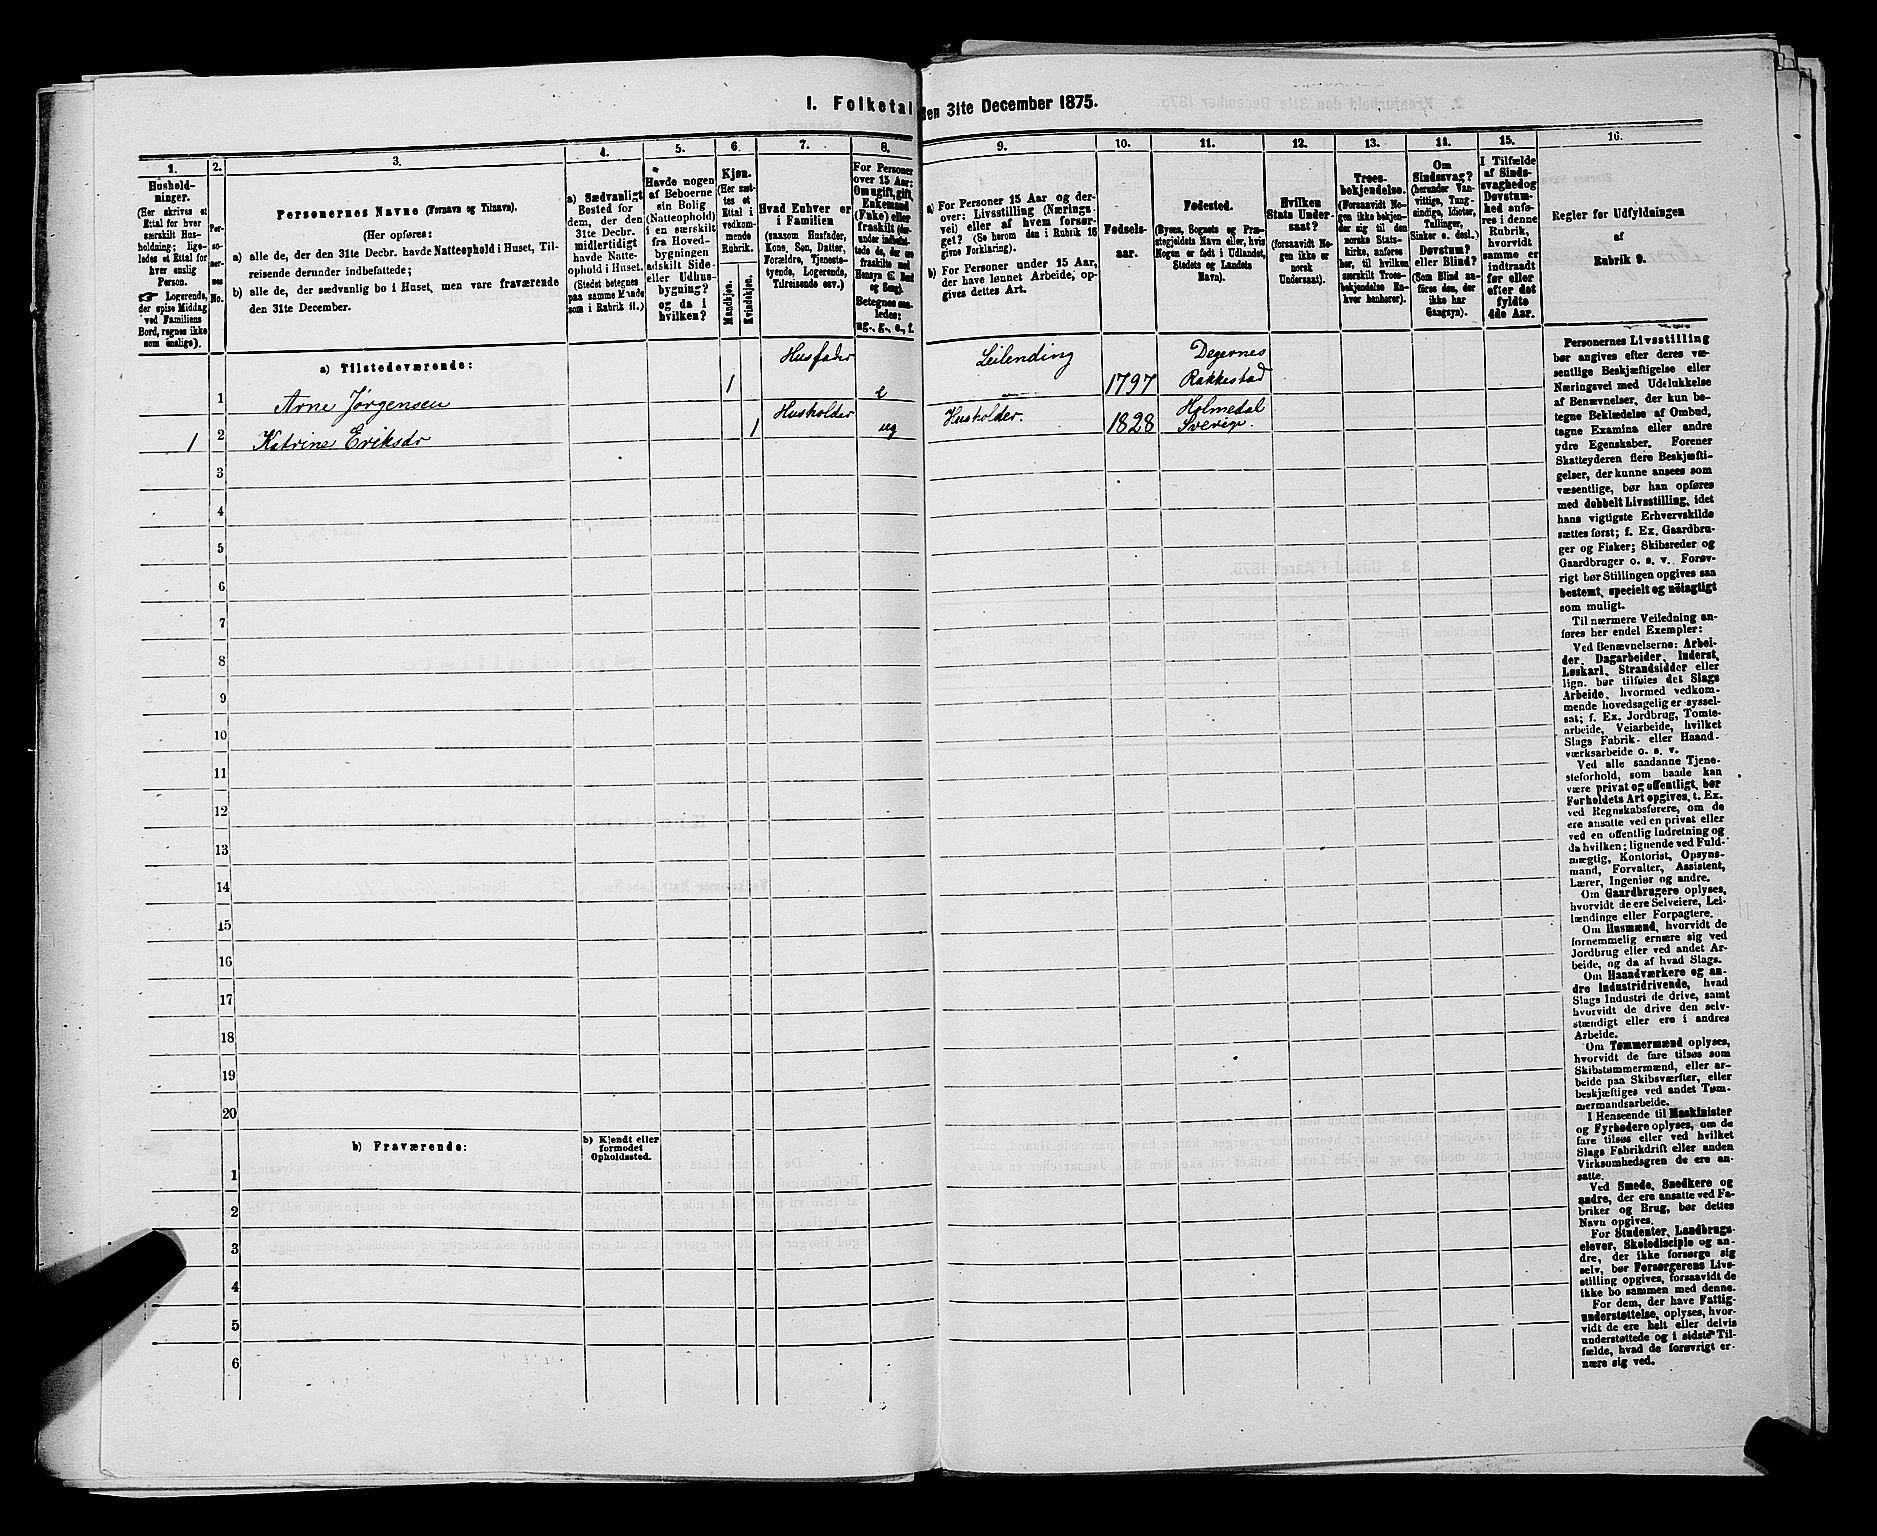 I. Folketal den 31te December 1875.
1.
Hushold-
ninger.
(Her skrives et
Ettal for hver
særskilt Hus-
holdning; lige-
ledes et Ettal for
hver enslig
Person.
☞ Logerende,
der spise Middag
ved Familiens
Bord, regnes ikke
som enslige).
2.
Per-
so-
ner-
nes
No.
3.
Personernes Navne (Fornavn og Tilnavn).
(Her opføres:
a) alle de, der den 31te Decbr. havde Natteophold i Huset, Til-
reisende derunder indbefattede;
b) alle de, der sædvanlig bo i Huset, men vare fraværende
den 31te December.
4.
a) Sædvanligt
Bosted for
dem, der den
31te Decbr.
midlertidigt
havde Natte-
ophold i Huset.
(Stedet betegnes
paa samme Maade
som i Rubrik 11.)
5.
Havde nogen
af Beboerne
sin Bolig
(Natteophold)
i en særskilt
fra Hoved-
bygningen
adskilt Side-
eller Udhus-
bygning?
og da i
hvilken?
6.
Kjøn.
(Her sæt-
tes et
Ettal i
vedkom-
mende
Rubrik.
Mandkjøn.
Kvindekjøn.
7.
Hvad Enhver er
i Familien
(saasom Husfader,
Kone, Søn, Datter,
Forældre, Tjeneste-
tyende, Logerende,
Tilreisende osv.)
8.
For Personer
over 15 Aar:
Om ugift, gift,
Enkemand
(Enke) eller
fraskilt
Betegnes saa-
ledes:
ug., g., e., f.
9.
a) For Personer 15 Aar og der-
over: Livsstilling (Nærings-
vei) eller af hvem forsør-
get? (Se herom den i Rubrik 16
givne Forklaring).
b) For Personer under 15 Aar,
der have lønnet Arbeide, op-
gives dettes Art.
10.
Fødsels-
aar.
11.
Fødested.
(Byens, Sognets og Præ-
stegjeldets Navn eller, hvis
Nogen er født i Udlandet,
Stedets og Landets
Navn).
12.
Hvilken
Stats Under-
saat?
(forsaavidt No-
gen ikke er
norsk
Undersaat).
13.
Troes-
bekjendelse.
(Forsaavidt No-
gen ikke bekjen-
der sig til den
norske Stats-
kirke, anføres
her, til hvilken
særskilt Troes-
bekjendelse En-
hver henhører).
14.
Om
Sindssvag?
(herunder Van-
vittige, Tung-
sindige, Idioter,
Tullinger,
Sinker o. desl.)
Døvstum?
eller Blind?
(Som Blind an-
føres den, der
ikke har
Gangsyn).
15.
I Tilfælde
af Sinds-
svaghed og
Døvstum-
hed anfø-
res i denne
Rubrik,
hvorvidt
samme er
indtraadt
før eller
efter det
fyldte
4de Aar.
16.
Regler for Udfyldningen
af
Rubrik 9.
a) Tilstedeværende:
1 Arne Jørgensen 1 Husfader e Leilending 1797 Degernes Rakkestad
1 2 Katrine Eriksdr 1 Husholder ug Husholder. 1828 Holmedal Sverige
3
4
5
6
7
8
9
10
11
12
13
14
15
16
17
18
19
20
b) Fraværende:
b) Kjendt eller
formodet
Opholdssted.
1
2
3
4
5
6
Personernes Livsstilling
bør angives efter deres væ-
sentlige Beskjæftigelse eller
Næringsvei med Udelukkelse
af Benævnelser, der kun be-
tegne Beklædelse af Ombud,
tagne Examina eller andre
ydre Egenskaber. Forener
Skatteyderen flere Beskjæfti-
gelser, der kunne ansees som
væsentlige, bør han opføres
med dobbelt Livsstilling, idet
hans vigtigste Erhvervskilde
sættes først; f. Ex. Gaardbru-
ger og Fisker; Skibsreder og
Gaardbruger o. s. v. Forøv-
rigt bør Stillingen opgives saa
bestemt, specielt og nöiagtigt
som muligt.
Til nærmere Veiledning an-
føres her endel Exempler:
Ved Benævnelserne: Arbei-
der, Dagarbeider, Inderst,
Løskarl, Strandsidder eller
lign. bør tilføies det Slags
Arbeide, hvormed vedkom-
mende hovedsagelig er syssel-
sat; f. Ex. Jordbrug, Tomte-
arbeide, Veiarbeide, hvilket
Slags Fabrik- eller Haand-
værksarbeide o. s. v.
Ved alle saadanne Tjene-
steforhold, som baade kan
være privat og offentligt, bør
Forholdets Art opgives, t. Ex.
ved Regnskabsførere, om de
ere ansatte ved en privat eller
ved en offentlig Indretning og
da hvilken; lignende ved Fuld-
mægtig, Kontorist, Opsyns-
mand, Forvalter, Assistent,
Lærer, Ingeniør og andre.
Om Gaardbrugere oplyses,
hvorvidt de ere Selveiere, Lei-
lændinge eller Forpagtere.
Om Husmænd, hvorvidt de
fornemmelig ernære sig ved
Jordbrug eller ved andet Ar-
beide, og da af hvad Slags.
Om Haandværkere og an-
dre Industridrivende, hvad
Slags Industri de drive, samt
hvorvidt de drive den selv-
stændigt eller ere i andres
Arbeide.
Om Tømmermænd oplyses,
hvorvidt de fare tilsøs som
Skibstømmermænd, eller ar-
beide paa Skibsværfter, eller
beskjæftiges ved andet Tøm-
mermandsarbeide.
I Henseende til Maskinister
og Fyrbødere oplyses, om de
fare tilsøs eller ved hvilket
Slags Fabrikdrift eller anden
Virksomhedsgren de ere an-
satte.
Ved Smede, Snedkere og
andre, der ere ansatte ved Fa-
briker og Brug, bør dettes
Navn opgives.
For Studenter, Landbrugs-
elever, Skoledisciple og an-
dre, der ikke forsørge sig
selv, bør Forsørgerens Livs-
stilling opgives, forsaavidt de
ikke bo sammen med denne.
For dem, der have Fattig-
understøttelse, oplyses, hvor-
vidt de ere helt eller delvis
understøttede og i sidste Til-
fælde, hvad de forøvrigt er-
nære sig ved.